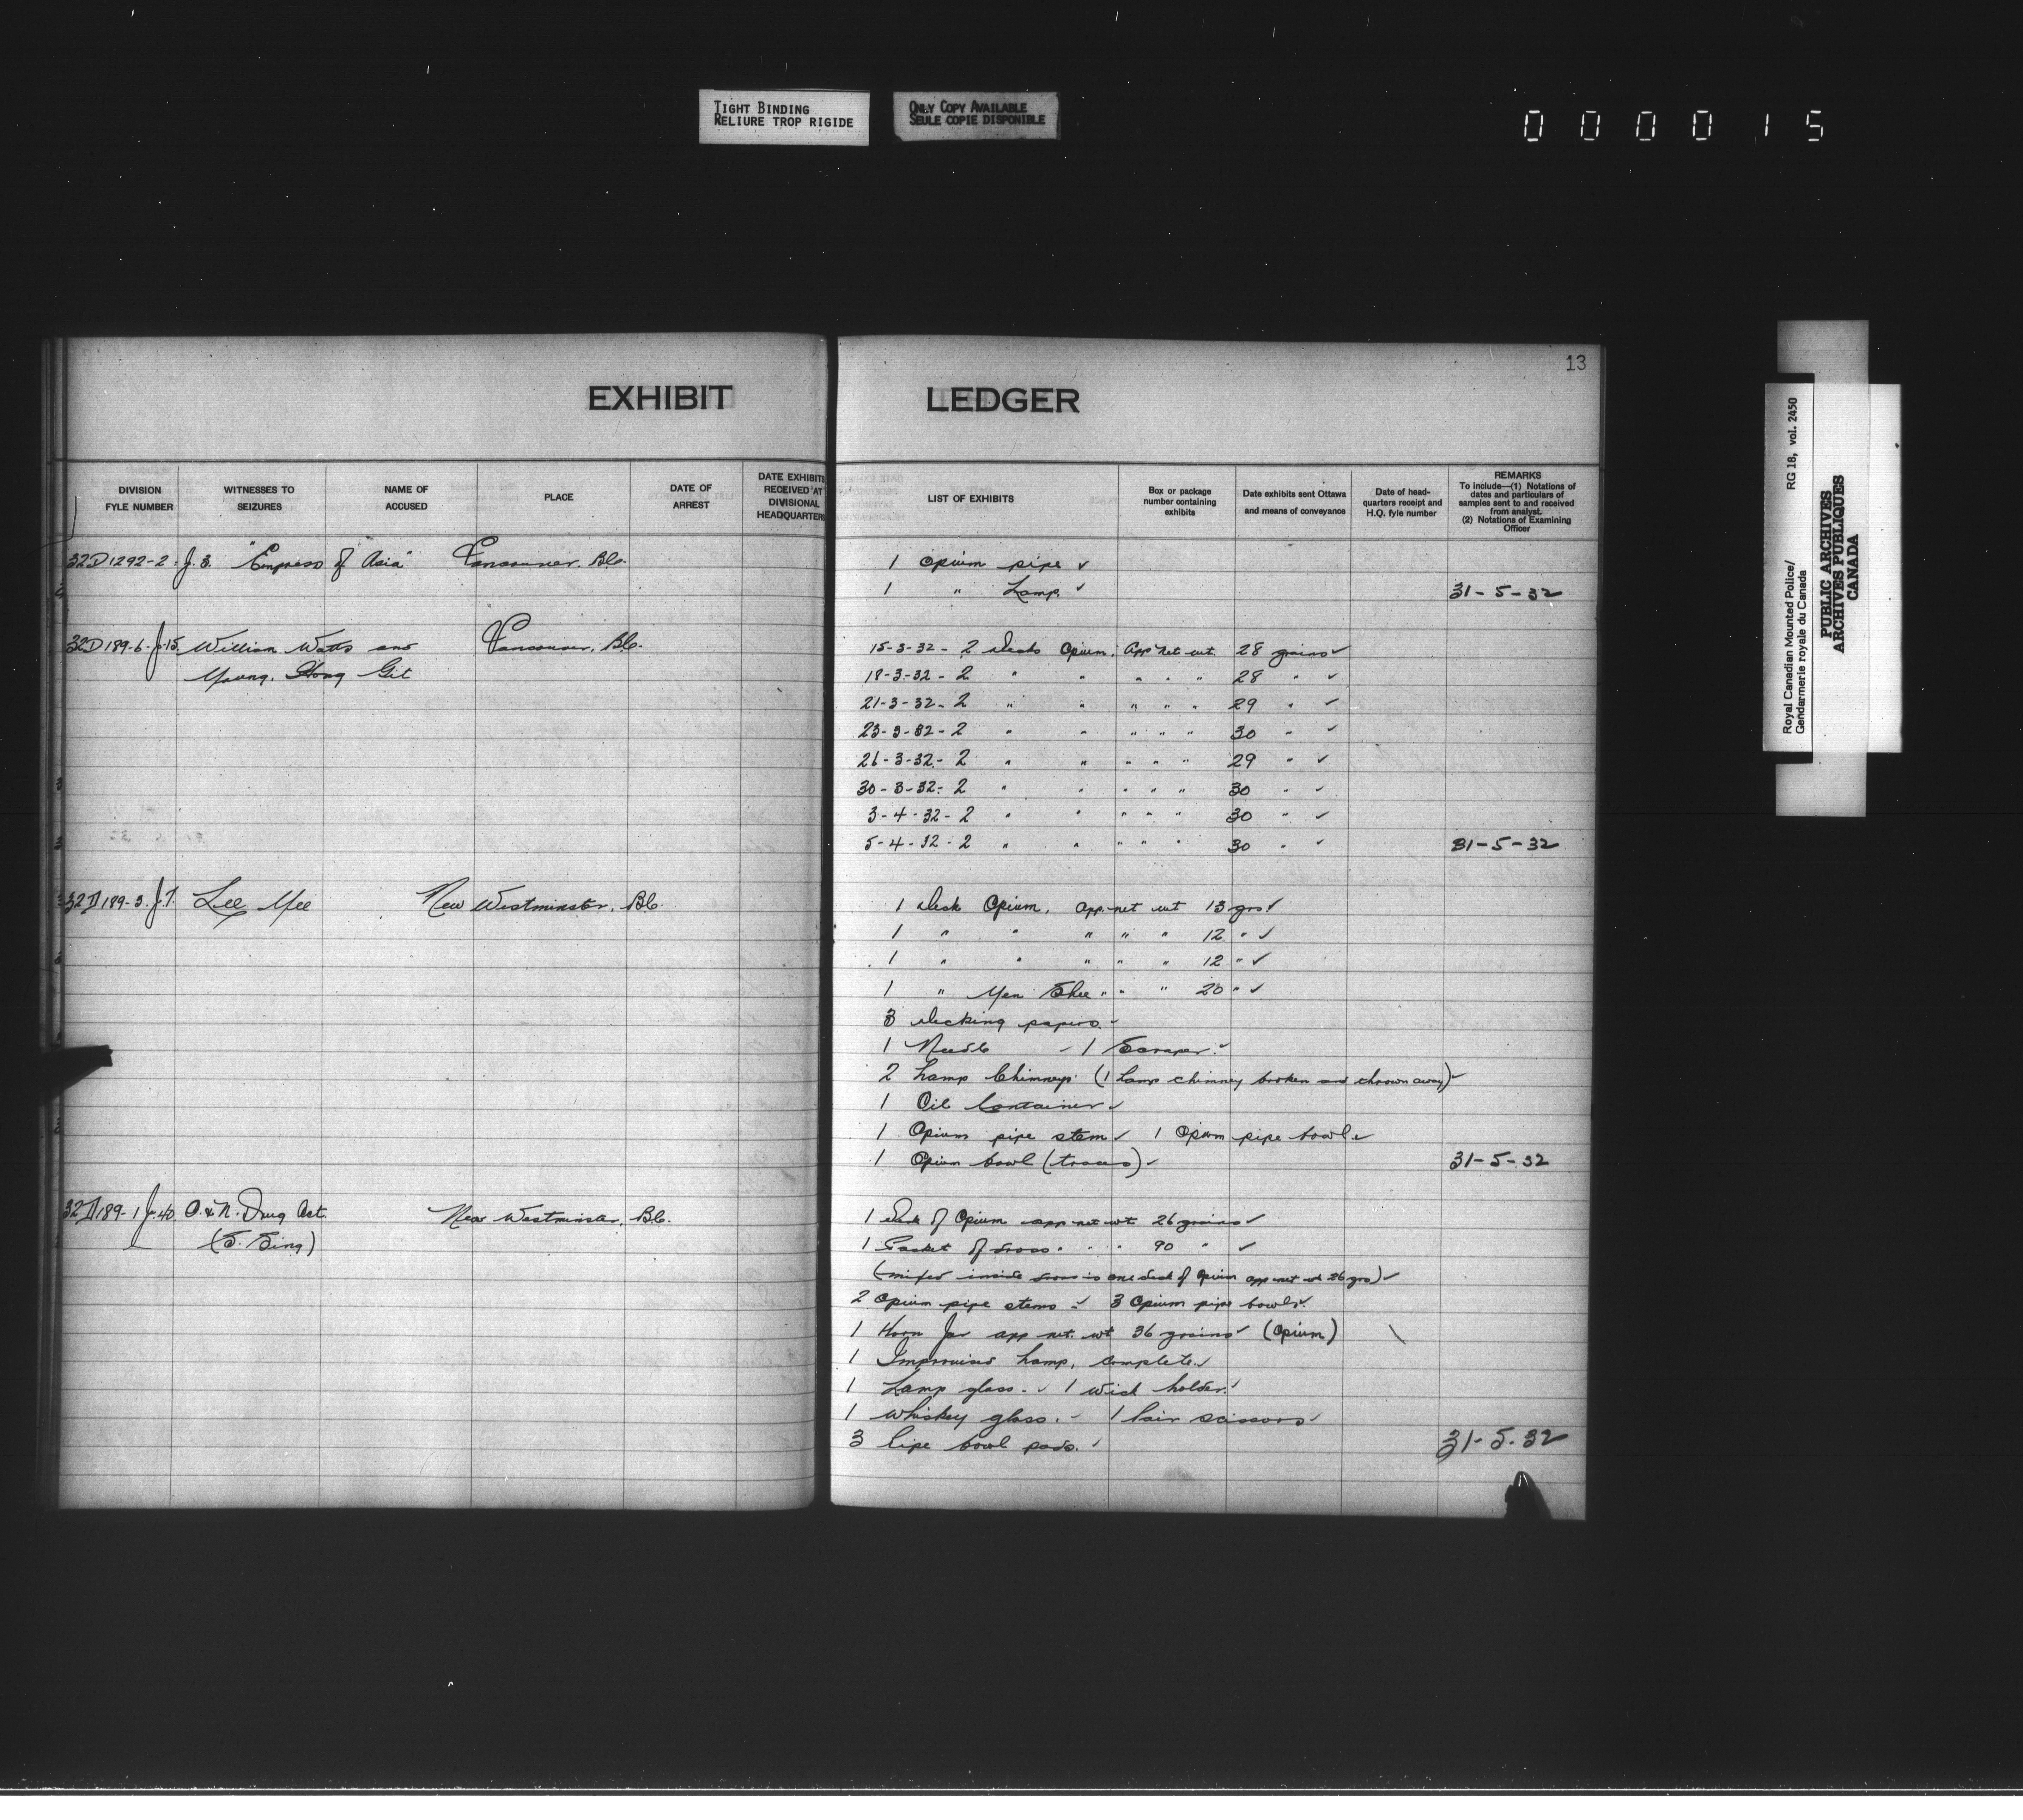 TIGHT BINDING
RELIURE TROP RIGIDE
ONLY COPY AVAILABLE
SEULE COPIE DISPONIBLE
000015
13
EXHIBIT LEDGER
DIVISION FYLE NUMBER
WITNESSES TO SEIZURES
NAME OF ACCUSED
PLACE
DATE OF ARREST
DATE EXHIBITS RECEIVED AT DIVISIONAL HEADQUARTERS
LIST OF EXHIBITS
Box or package number containing exhibits
Date exhibits sent Ottawa and means of conveyance
Date of head-quarters receipt and H.Q. fyle number
REMARKS
To include—(1) Notations of dates and particulars of samples sent to and received from analyst.
(2) Notations of Examining Officer
32D1292-2. J.3. "Empress of "Asia" Vancouver. B.C. 1 Opium pipe ✓
1 " Lamp. ✓ 31-5-32
32D189-6-J-15. William Watts and Vancouver, B.C. 15-3-32 - 2 decks Opium, App net wt. 28 grains ✓
Young. Hong Git 18-3-32 - 2 " " " " " 28 " ✓
21-3-32 - 2 " " " " " 29 " ✓
23-3-32 - 2 " " " " " 30 " ✓
26-3-32 - 2 " " " " " 29 " ✓
30-3-32 - 2 " " " " " 30 " ✓
3-4-32 - 2 " " " " " 30 " ✓
5-4-32 - 2 " " " " " 30 " ✓ 31-5-32
32D189-3. J.7. Lee Mee New Westminster, B.C. 1 deck Opium, app. net wt 13 grs ✓
1 " " " " " 12 " ✓
1 " " " " " 12 " ✓
1 " Yen Shee " " " 20 " ✓
3 decking papers. ✓
1 Needle ✓ 1 Scraper. ✓
2 Lamp Chimneys (1 Lamp chimney broken and thrown away) ✓
1 Oil Container ✓
1 Opium pipe stem ✓ 1 Opium pipe bowl ✓
1 Opium bowl (traces) ✓ 31-5-32
32D189-1 J.40. O. & N. Drug Act. New Westminster, B.C. 1 Deck of Opium app net wt 26 grains ✓
(S. Sing) 1 Packet of dross " " " 90 " ✓
(mixed inside dross is one deck of Opium app net wt 26 grs) ✓
2 Opium pipe stems ✓ 3 Opium pipe bowls ✓
1 Horn Jar app net. wt 36 grains ✓ (Opium)
1 Improvised Lamp, complete ✓
1 Lamp glass. ✓ 1 wick holder. ✓
1 Whiskey glass. ✓ 1 Pair scissors ✓
3 Pipe bowl pads. ✓ 31-5-32
Royal Canadian Mounted Police/ RG 18, vol. 2450
Gendarmerie royale du Canada
PUBLIC ARCHIVES
ARCHIVES PUBLIQUES
CANADA